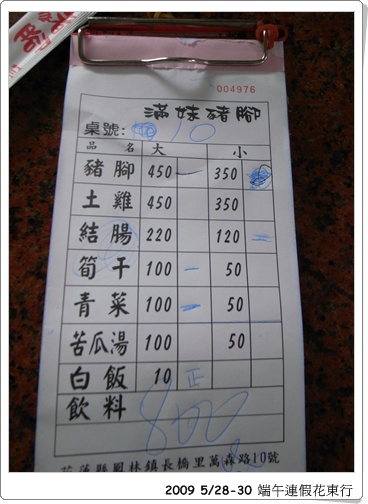 004976
滿妹豬腳
桌號: 10
品名 大 小
豬腳 450 一 350
土雞 450 350
結腸 220 120 二
筍干 100 一 50
青菜 100 二 50
苦瓜湯 100 50
白飯 10 正
飲料
800
花蓮縣鳳林鎮長橋里萬森路10號
2009 5/28-30 端午連假花東行